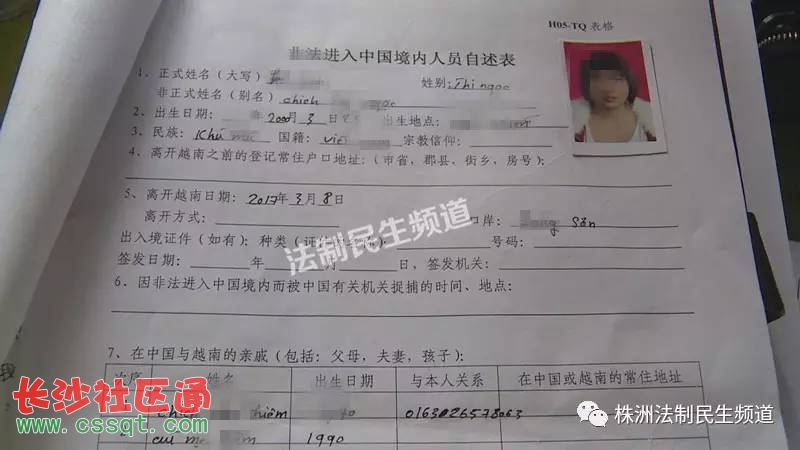 H05-TQ 表格
非法进入中国境内人员自述表
1、正式姓名（大写） 姓别: Thi ngoc
非正式姓名（别名） chich
2、出生日期: 年 2000月 3 日 出生地点:
3、民族: Khơ mú 国籍: việ 宗教信仰:
4、离开越南之前的登记常住户口地址:（市省，郡县，街乡，房号）:
5、离开越南日期: 2017年 3月 8日
离开方式: 口岸: Sơn
出入境证件（如有）: 种类（证 号码:
签发日期: 年 月 日，签发机关:
6、因非法进入中国境内而被中国有关机关捉捕的时间、地点:
法制民生频道
7、在中国与越南的亲戚（包括: 父母，夫妻，孩子）:
次序 姓名 出生日期 与本人关系 在中国或越南的常住地址
khiêm 0163026578063
cut 1990
长沙社区通
www.cssqt.com
株洲法制民生频道